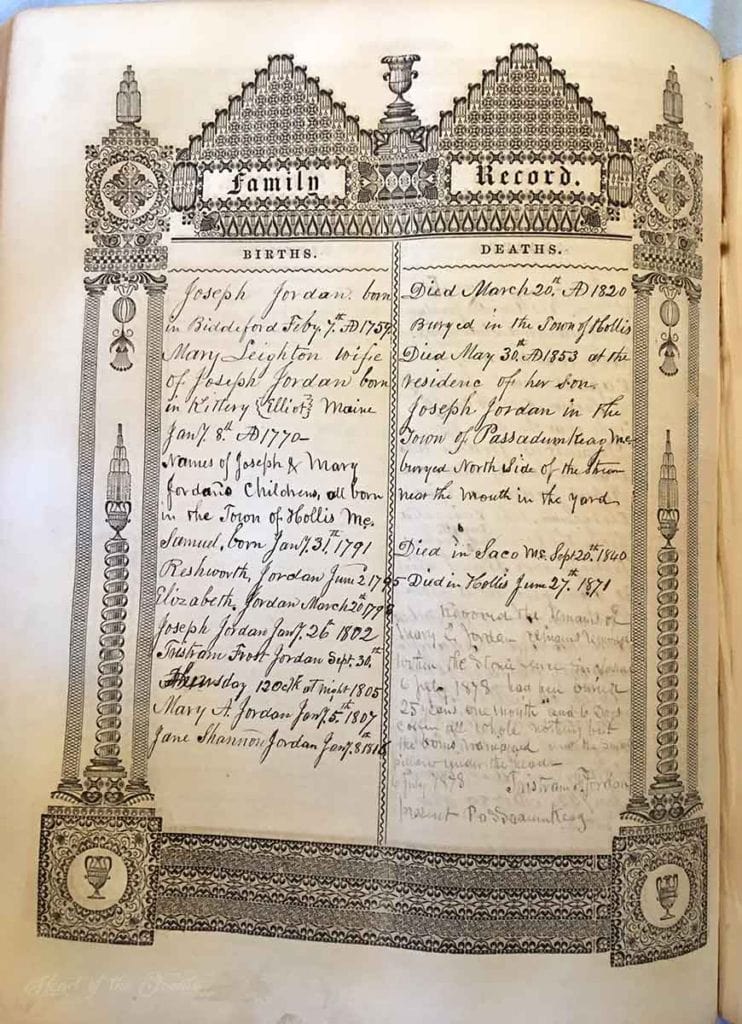 Family Record.
BIRTHS.
Joseph Jordan. born
in Biddeford Feby. 7th AD 1759
Mary Leighton wife
of Joseph Jordan born
in Kittery {Elliot} Maine
Jany. 8th AD 1770
Names of Joseph & Mary
Jordans Childrens, all born
in the Town of Hollis Me.
Samuel, born Jany. 31st 1791
Reshworth, Jordan June 2 1795
Elizabeth, Jordan March 20
Joseph Jordan Jany. 26th 1802
Tristram Frost Jordan Sept. 30th
Thursday 12 Oclk at night 1805
Mary A. Jordan Jany. 5th 1807
Jane Shannon Jordan Jany. 8
DEATHS.
Died March 20th AD 1820
Buryed in the Town of Hollis
Died May 30th AD 1853 at the
residenc of her Son.
Joseph Jordan in the
Town of Passadumkeag Me
buryed North Side of the
near the mouth in the yard
Died in Saco Me. Sept 20th 1840
Died in Hollis June 27th 1871
the remains of
Mary L. Jordan remains
within the Stone
6 July 1878 had been
25 years one month and 6 Days
all whole nothing but
the bones and the
pillow under the head
6 July 1878 Tristram F. Jordan
present Passadumkeag
Heart of the